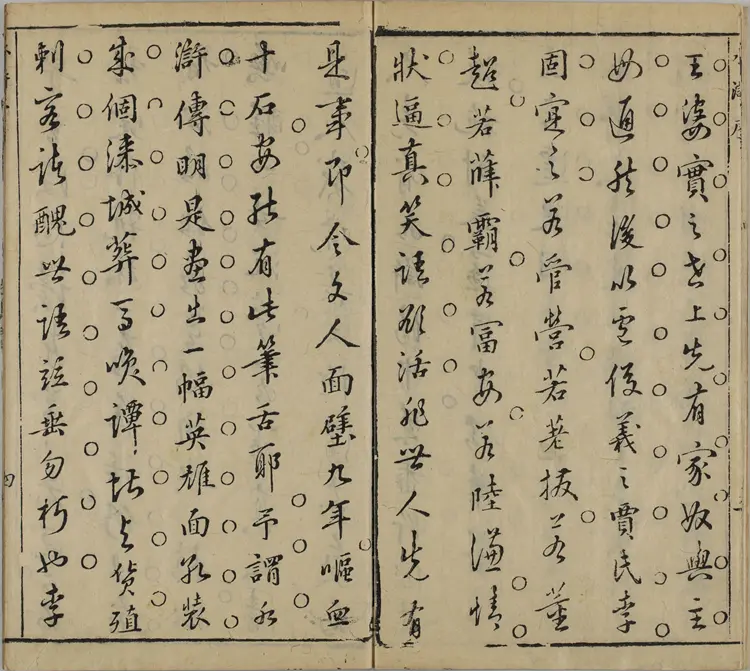 王婆實之世上先有家奴與主
母通然後以盧俊義之賈氏李
固實之若管營若差撥若董
超若薛霸若富安若陸謙情
狀逼真笑語欲活非世人先有
是事即令文人面壁九年嘔血
十石安能有此筆舌耶予謂水
滸傳明是畫出一幅英雄面孔裝
成個漆城葬馬喚譚堪與貨殖
刺客諸醜世語並垂勿朽也李
四